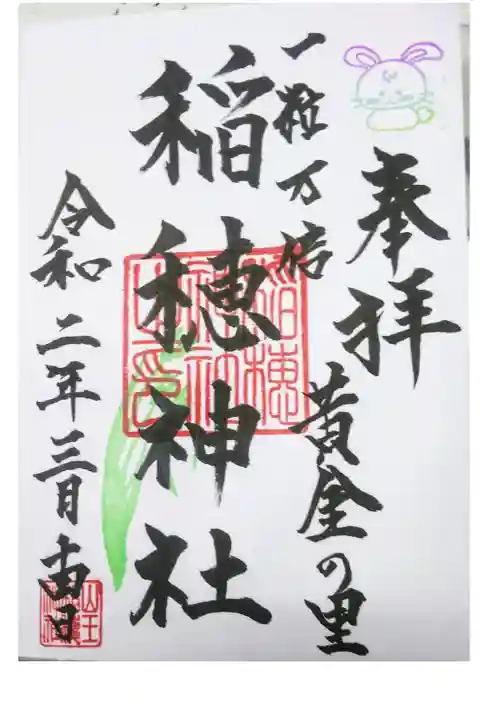 奉拝
一粒万倍
黄金の里
稲穂神社
稲穂神社之印
令和二年三月十四日